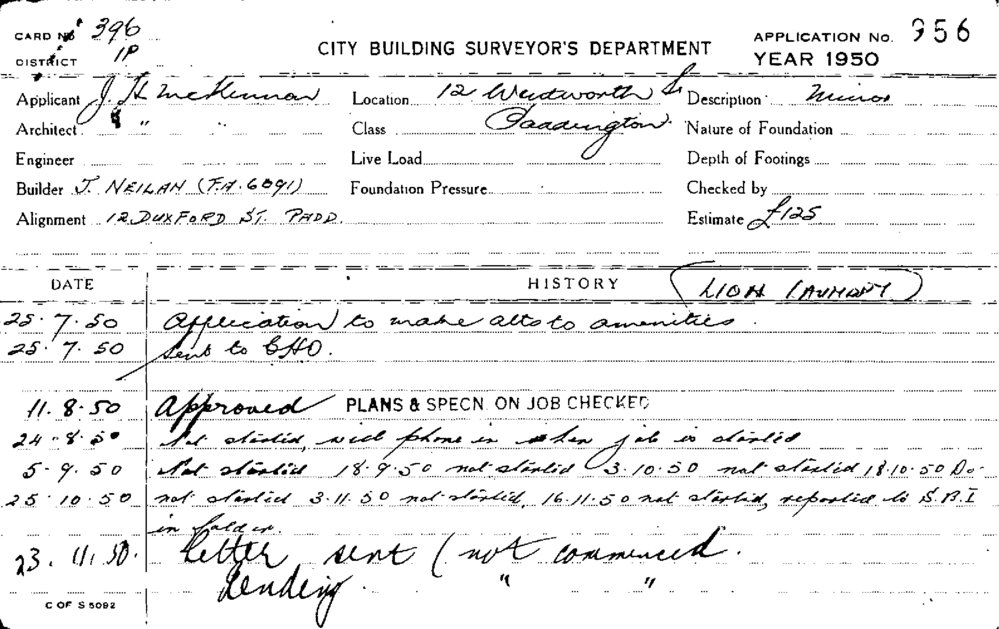 CARD No 396
DISTRICT 1P
CITY BUILDING SURVEYOR'S DEPARTMENT
APPLICATION No. 956
YEAR 1950
Applicant J. H. McKinnon Location 12 Wentworth St Description Minor
Architect " " Class Paddington Nature of Foundation
Engineer Live Load Depth of Footings
Builder J. NEILAN (F.A. 6091) Foundation Pressure Checked by
Alignment 12 DUXFORD ST. PADD. Estimate £125
DATE HISTORY LION LAUNDRY
25.7.50 Application to make alts to amenities.
25.7.50 Sent to CHO.
11.8.50 Approved PLANS & SPECN. ON JOB CHECKED
24.8.50 Not started, will phone in when job is started
5.9.50 Not started 18.9.50 not started 3.10.50 not started 18.10.50 Do.
25.10.50 not started 3.11.50 not started, 16.11.50 not started, reported to S.B.I
in folder.
23.11.50. Letter sent (not commenced.
Pending " "
C OF S 5092